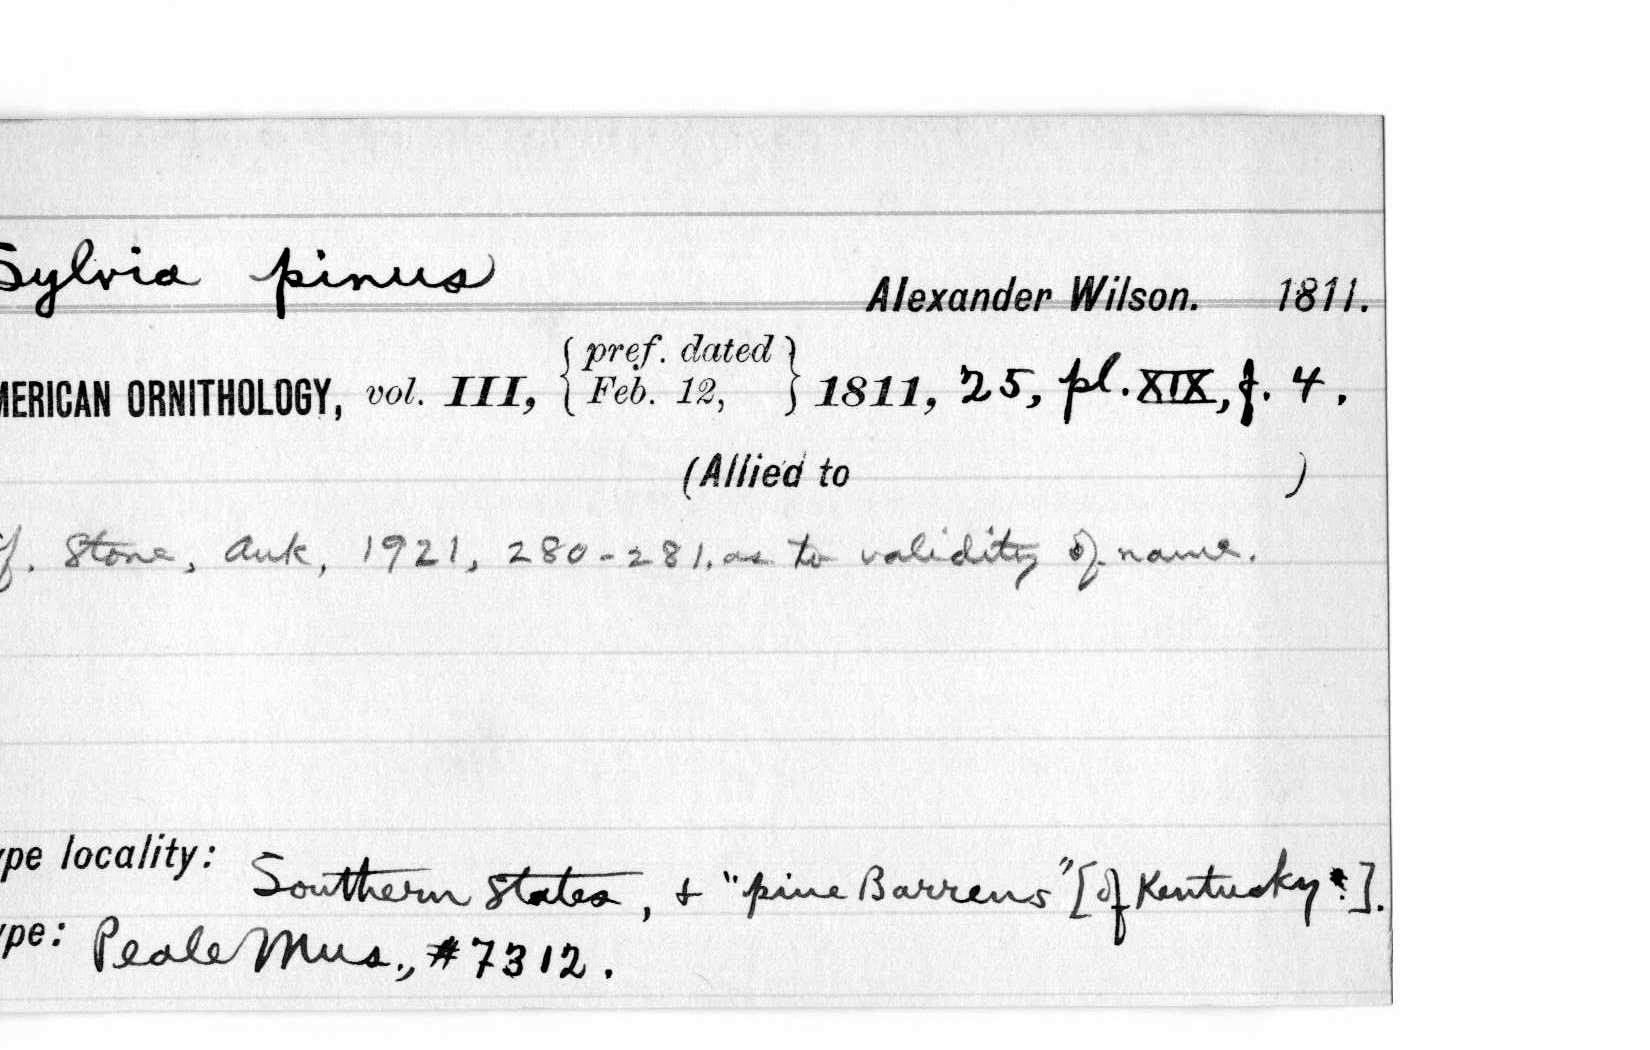 Sylvia pinus
Alexander Wilson. 1811.
MERICAN ORNITHOLOGY, vol. III, { pref. dated Feb. 12, } 1811, 25, pl. XIX, f. 4.
(Allied to )
f. Stone, Auk, 1921, 280-281, as to validity of name.
ype locality: Southern States, + "pine Barrens" [of Kentucky?].
ype: Peale Mus., #7312.